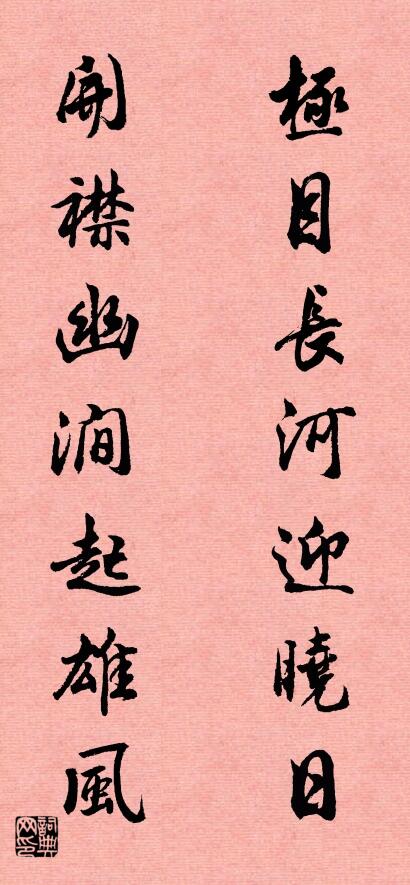 極目長河迎曉日
開襟幽澗起雄風
詞典网印